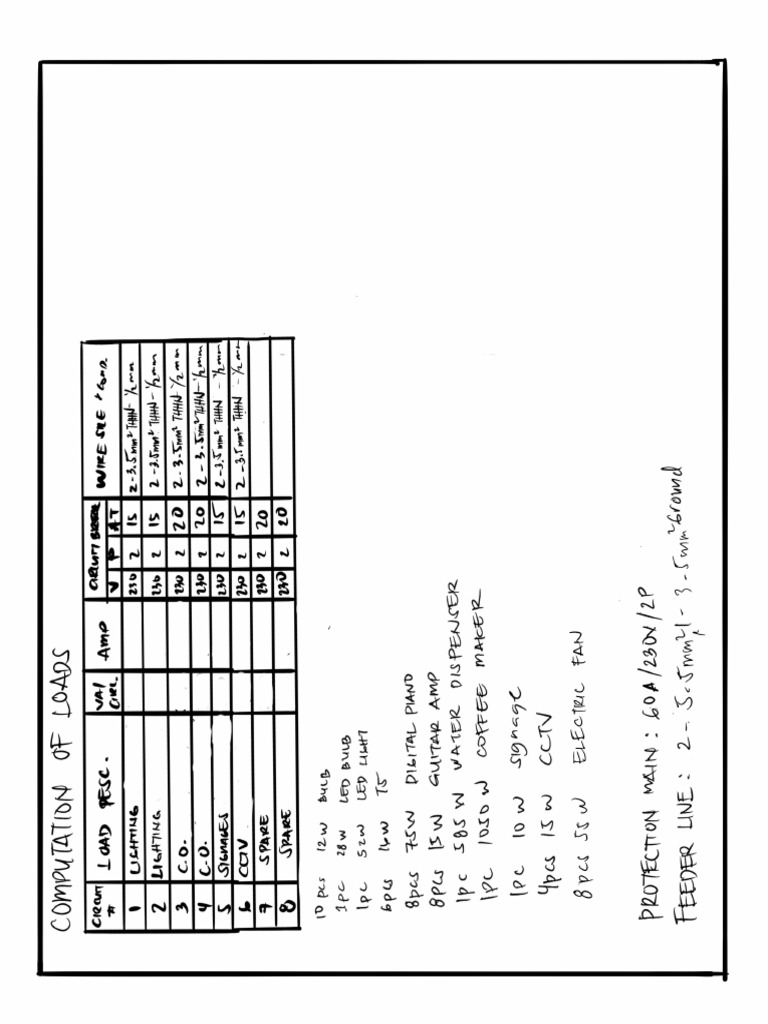 COMPUTATION OF LOADS
CIRCUIT # LOAD DESC. VA/CIRC. AMP CIRCUIT BREAKER WIRE SIZE & COND.
V P AT
1 LIGHTING 230 2 15 2-3.5mm² THHN-1/2mm
2 LIGHTING 230 2 15 2-3.5mm² THHN-1/2mm
3 C.O. 230 2 20 2-3.5mm² THHN-1/2mm
4 C.O. 230 2 20 2-3.5mm² THHN-1/2mm
5 SIGNAGES 230 2 15 2-3.5mm² THHN-1/2mm
6 CCTV 230 2 15 2-3.5mm² THHN-1/2mm
7 SPARE 230 2 20
8 SPARE 230 2 20
10 pcs 12W BULB
1PC 28W LED BULB
1pc 52W LED LIGHT
6pcs 16W T5
8pcs 75W DIGITAL PIANO
8pcs 15W GUITAR AMP
1pc 585W WATER DISPENSER
1PC 1050W COFFEE MAKER
1pc 10W signage
4pcs 15W CCTV
8pcs 55W ELECTRIC FAN
PROTECTION MAIN: 60A/230V/2P
FEEDER LINE: 2-5.5mm² 1-3.5mm² Ground